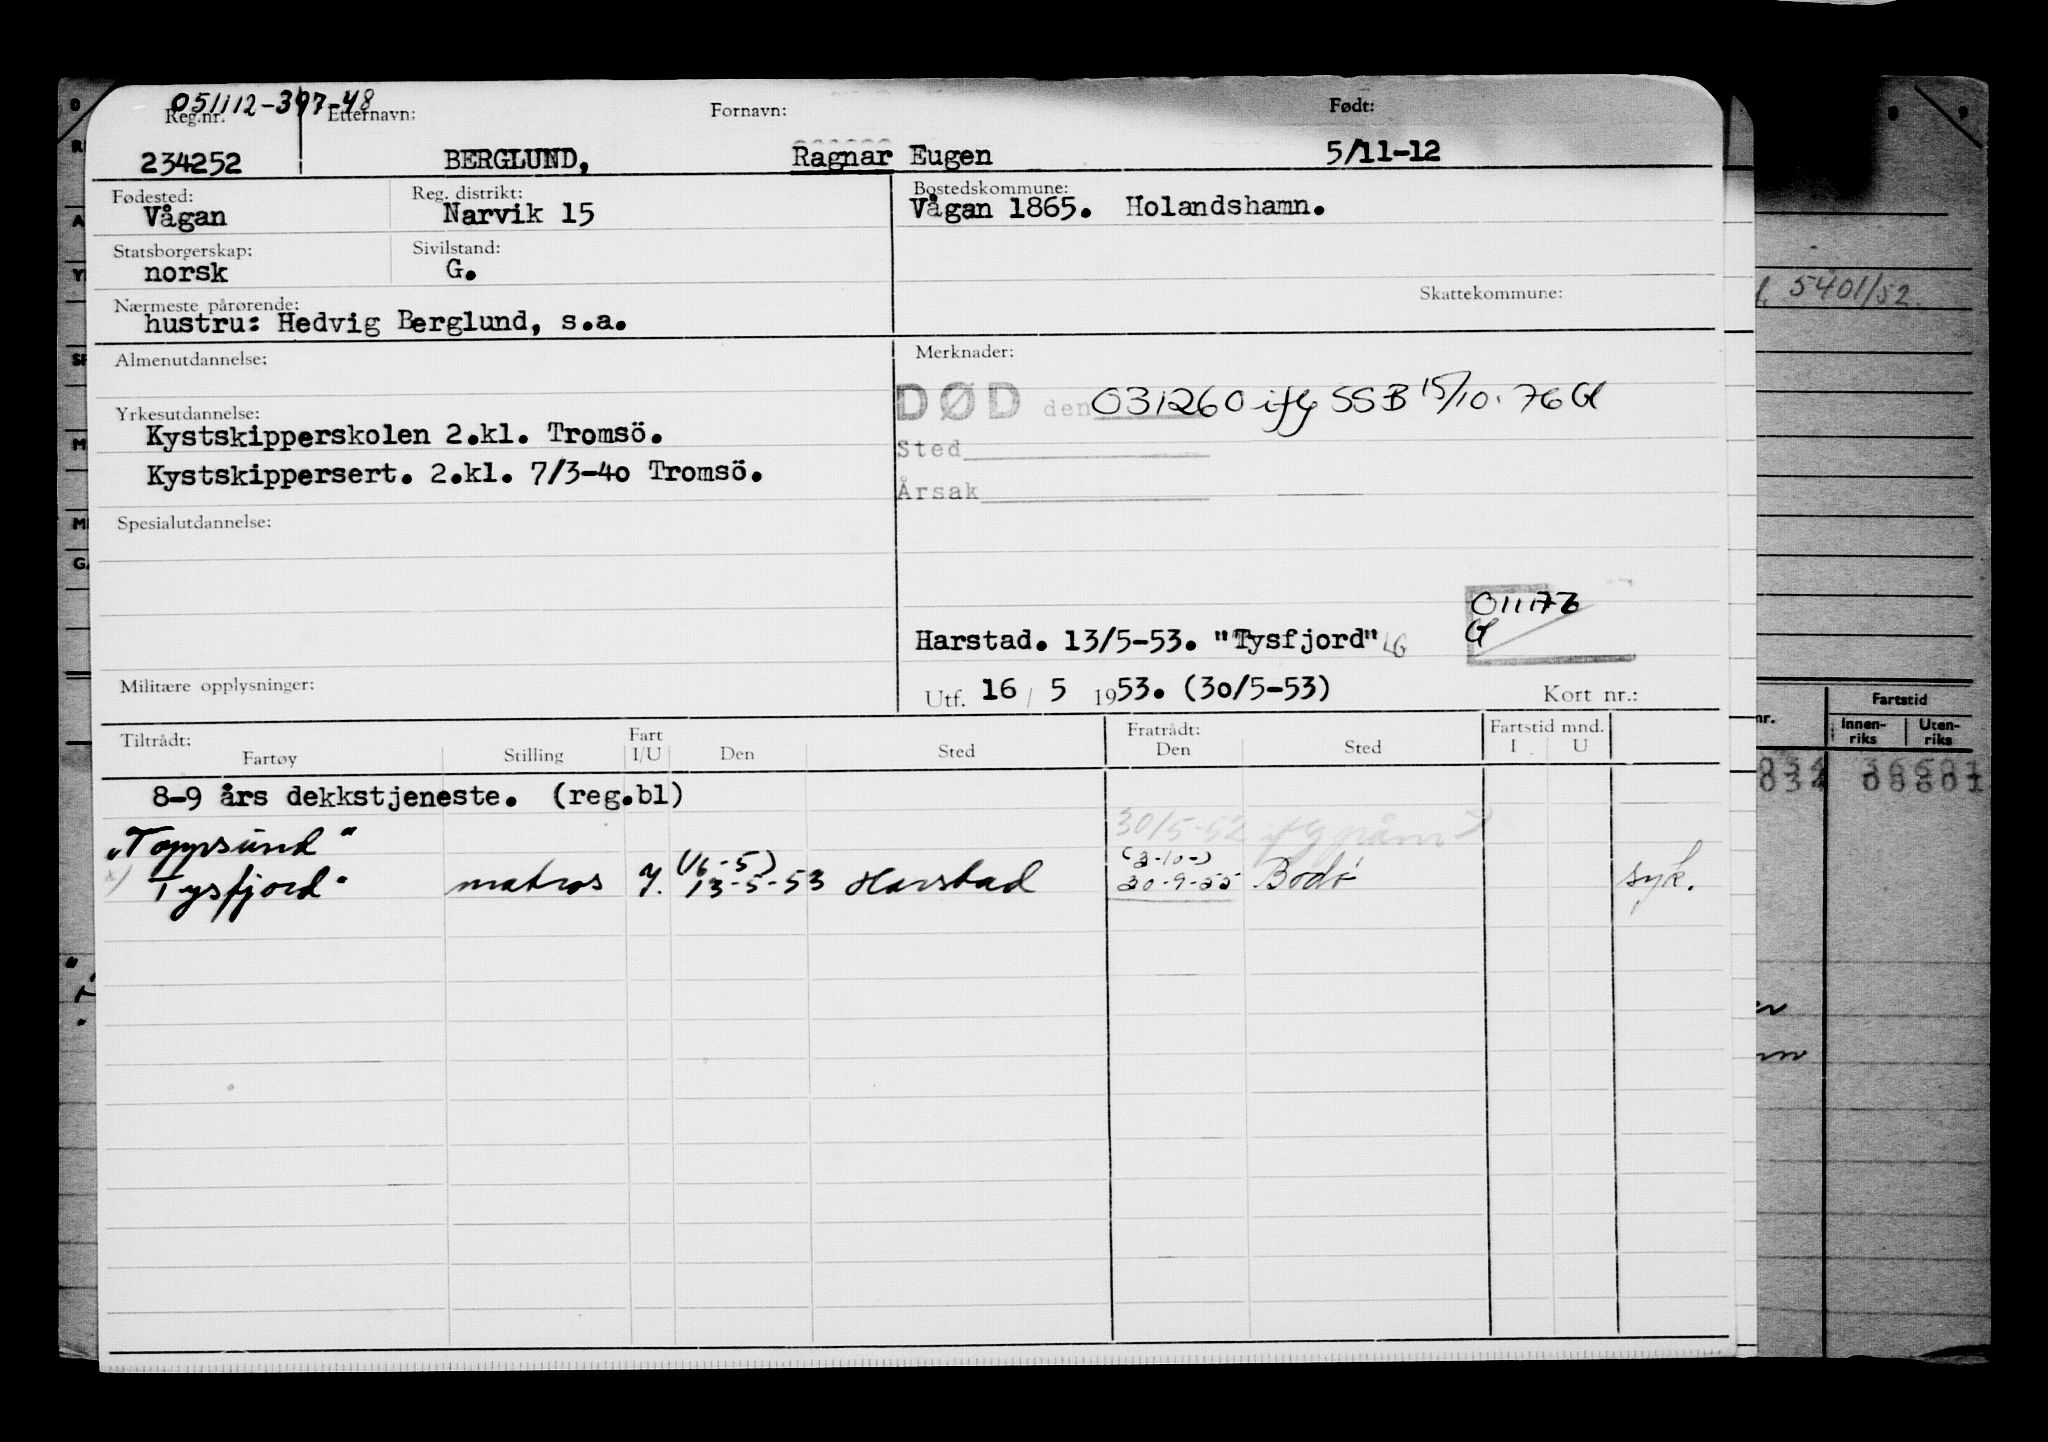 051112-397-48
Reg.nr. Etternavn: Fornavn: Født:
234252 BERGLUND, Ragnar Eugen 5/11-12
Fødested: Reg. distrikt: Bostedskommune:
Vågan Narvik 15 Vågan 1865. Holandshamn.
Statsborgerskap: Sivilstand:
norsk G.
Skattekommune:
5401/52.
Nærmeste pårørende:
hustru: Hedvig Berglund, s.a.
Almenutdannelse: Merknader:
DØD den 031260 ifg SSB 15/10.76 Gl
Yrkesutdannelse:
Kystskipperskolen 2.kl. Tromsö.
Sted
Kystskippersert. 2.kl. 7/3-40 Tromsö.
Årsak
Spesialutdannelse:
011176
Gl
Harstad. 13/5-53. "Tysfjord"
Militære opplysninger:
Utf. 16 / 5 1953. (30/5-53) Kort nr.:
Fartstid
Innen-riks Uten-riks
Tiltrådt: Fart Fratrådt: Fartstid mnd.
Fartøy Stilling I/U Den Sted Den Sted I U
8-9 års dekkstjeneste. (reg.bl)
30/5-52 ifg
„Toppsund"
(16-5) (3-10-)
x) Tysfjord" matros I. 13-5-53 Harstad 30-9-55 Bodø syk.